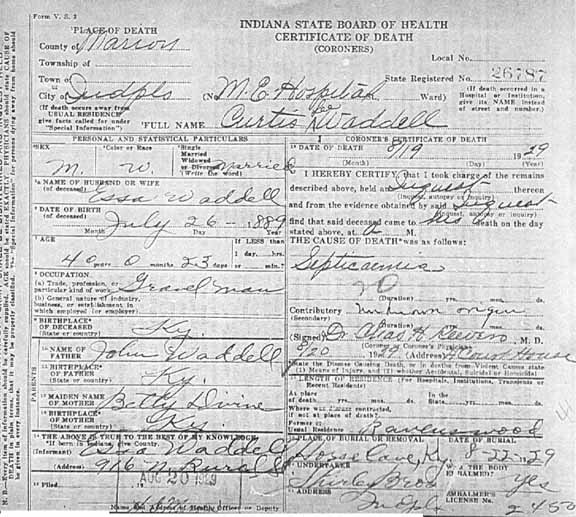 Form V. S. 3
INDIANA STATE BOARD OF HEALTH
CERTIFICATE OF DEATH
(CORONERS)
PLACE OF DEATH
County of Marion
Township of
Town of
City of Indpls (No M. E. Hospital Ward)
Local No.
State Registered No. 26787
(If death occurred in a
Hospital or Institution,
give its NAME instead
of street and number.)
(If death occurs away from
USUAL RESIDENCE
give facts called for under
"Special Information")
FULL NAME Curtis Waddell
PERSONAL AND STATISTICAL PARTICULARS
SEX M. Color or Race W. Single Married Widowed or Divorced (Write the word) Married
NAME OF HUSBAND OR WIFE
(of deceased) Essa Waddell
DATE OF BIRTH
(of deceased) July 26 - 1889
Month Day Year
AGE
40 years 0 months 23 days
If LESS than
1 day, hrs.
or min.?
OCCUPATION.
(a) Trade, profession, or
particular kind of work Gravel man
(b) General nature of industry,
business, or establishment in
which employed (or employer)
BIRTHPLACE
OF DECEASED Ky.
(State or country)
PARENTS
NAME OF
FATHER John Waddell
BIRTHPLACE
OF FATHER Ky.
(State or country)
MAIDEN NAME
OF MOTHER Betty Divine
BIRTHPLACE
OF MOTHER Ky
(State or country)
THE ABOVE IS TRUE TO THE BEST OF MY KNOWLEDGE
(Informant) Essa Waddell
(Address) 916 N. Rural St
Filed AUG 20 1929
Name and Address of Health Officer or Deputy
CORONER'S CERTIFICATE OF DEATH
DATE OF DEATH 8/19 1929
(Month) (Day) (Year)
I HEREBY CERTIFY, that I took charge of the remains
described above, held an Inquest thereon
(Inquest, autopsy or inquiry)
and from the evidence obtained by said Inquest
(Inquest, autopsy or inquiry)
find that said deceased came to his death on the day
stated above, at A M.
THE CAUSE OF DEATH was as follows:
Septicaemia
20
(Duration) yrs. mos. ds.
Contributory unknown origin
(Secondary) (Duration) yrs. mos. ds.
(Signed) Dr. M. D.
(Coroner or Coroner's Physician)
8/20 1929 (Address) Court House
State the Disease Causing Death, or in deaths from Violent Causes state
(1) Means of Injury, and (2) whether Accidental, Suicidal or Homicidal
LENGTH OF RESIDENCE (For Hospitals, Institutions, Transients or
Recent Residents)
At place
of death yrs. mos. ds. State yrs. mos. ds.
Where was disease contracted,
if not at place of death?
Former or
usual Residence Ravenswood
PLACE OF BURIAL OR REMOVAL DATE OF BURIAL
Horse Cave, Ky. 8-22-29
UNDERTAKER Shirley Bros
WAS THE BODY
EMBALMED? Yes
ADDRESS Indpls
EMBALMER'S
LICENSE No. 2450